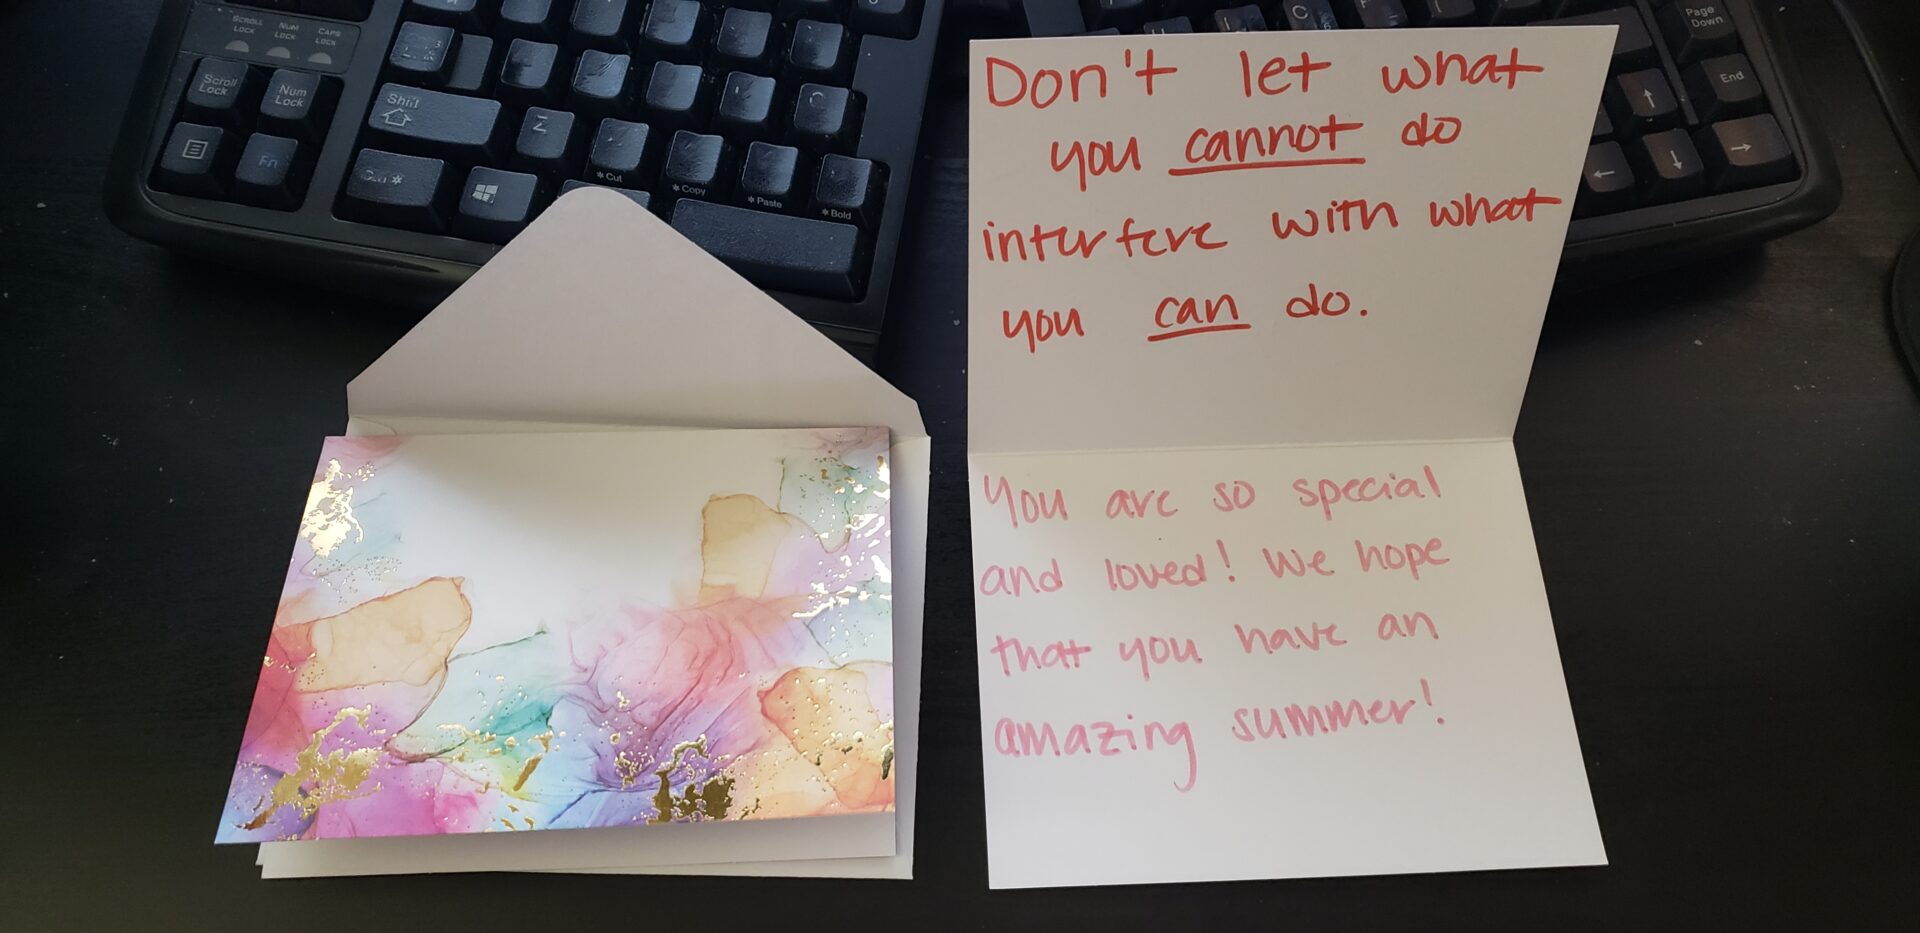 SCROLL LOCK
NUM LOCK
CAPS LOCK
Scroll Lock
Num Lock
Shift
Z
Fn
* Cut
* Copy
* Paste
* Bold
C
Page Down
End
Don't let what
you cannot do
interfere with what
you can do.
You are so special
and loved! We hope
that you have an
amazing summer!